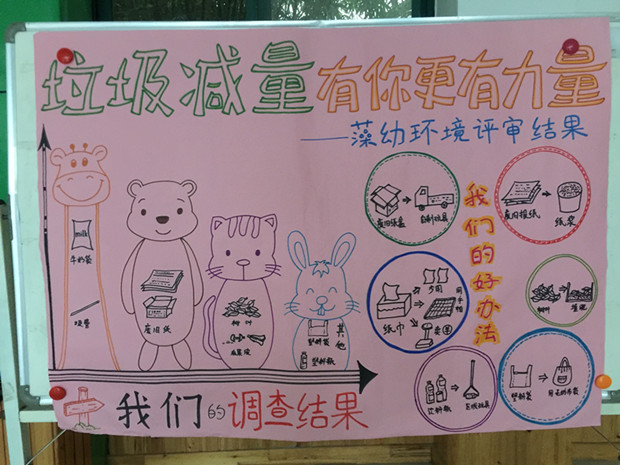 垃圾减量有你更有力量
——藻幼环境评审结果
milk
牛奶袋
吸管
废旧纸
树叶
塑料袋
其他
塑料瓶
我们的好办法
废旧纸盒
自制玩具
废旧报纸
纸浆
纸巾
少用
用手帕
树叶
堆肥
饮料瓶
塑料袋
用无纺布袋
我们的调查结果